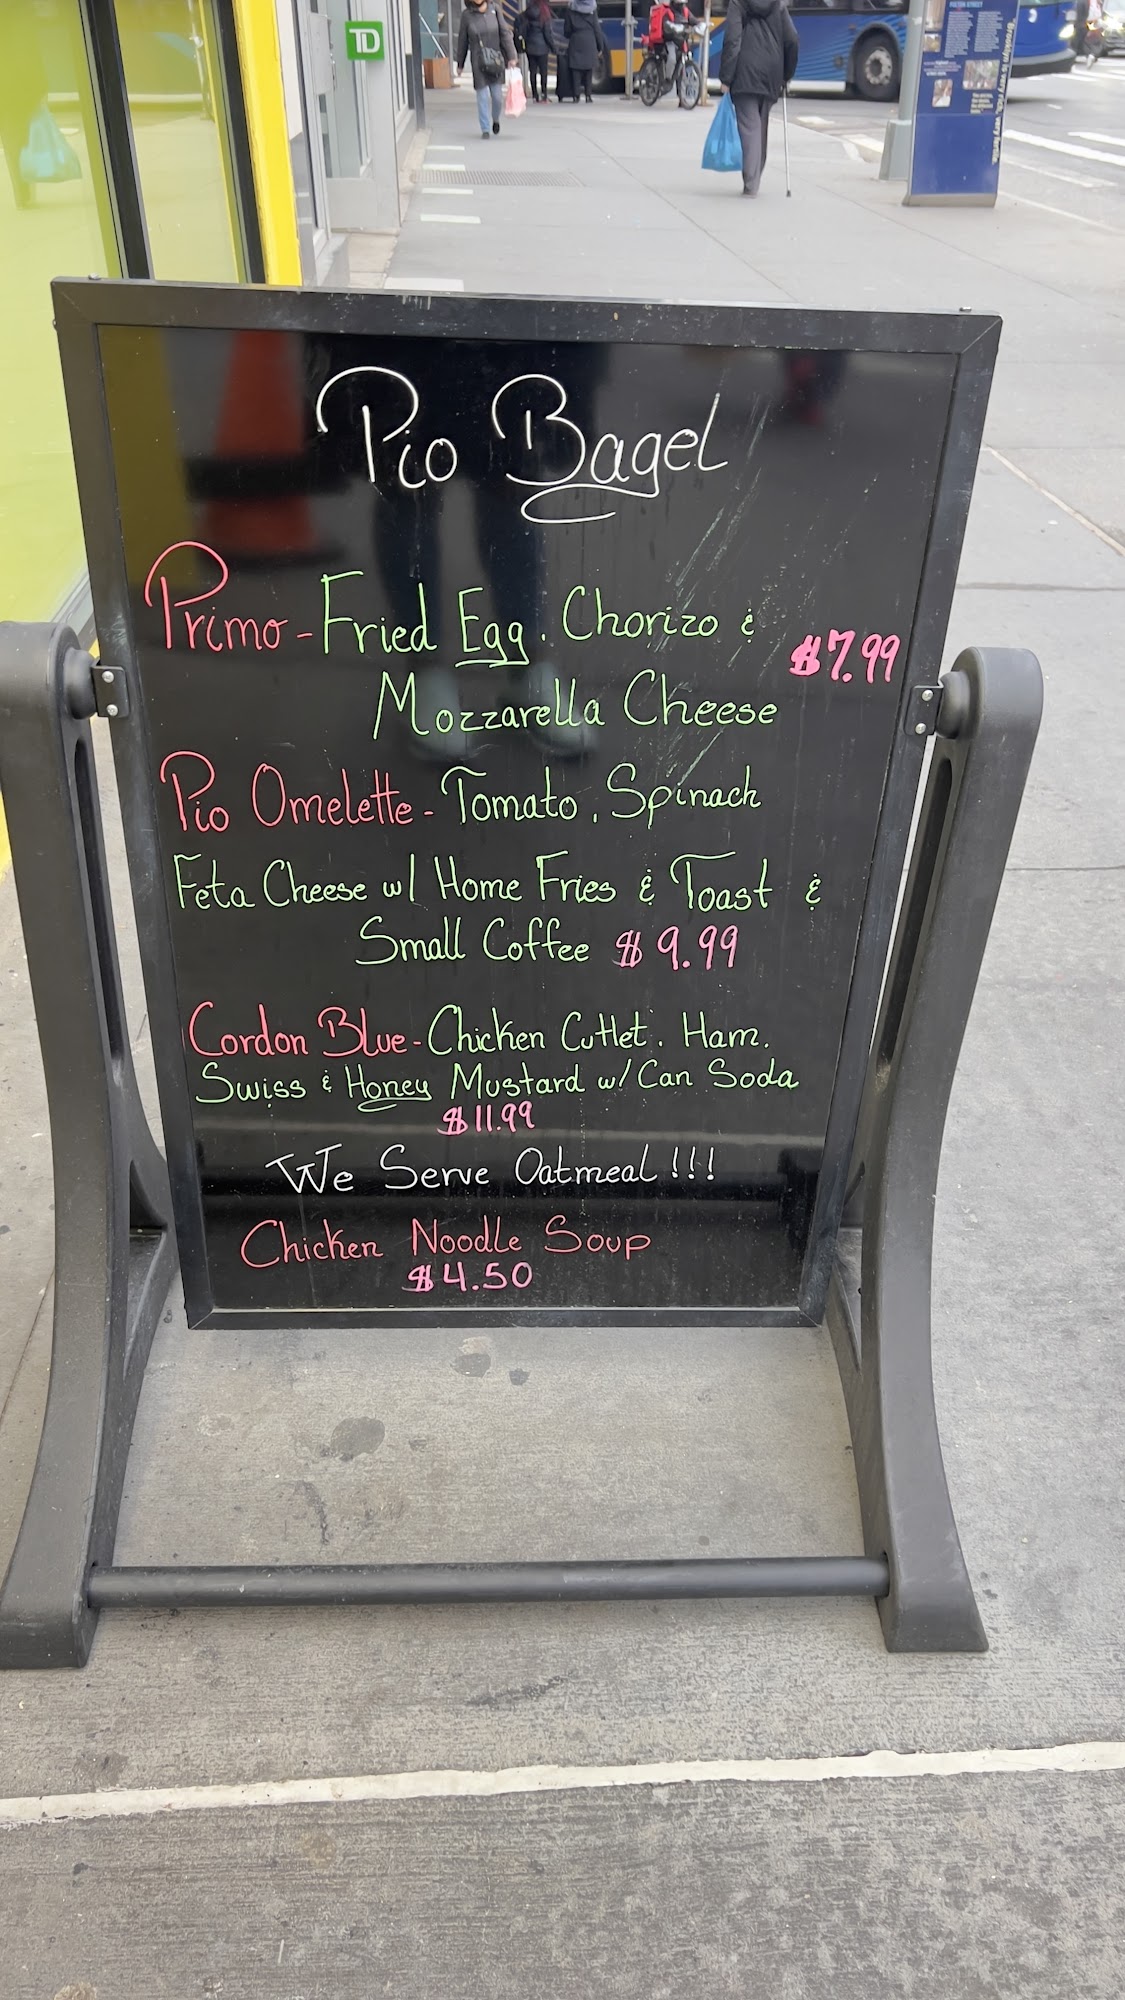 TD
FULTON STREET
Brooklyn is very rich, very fertile.
Pio Bagel
Primo - Fried Egg. Chorizo & $7.99
Mozzarella Cheese
Pio Omelette - Tomato, Spinach
Feta Cheese w/ Home Fries & Toast &
Small Coffee $9.99
Cordon Blue - Chicken Cutlet. Ham.
Swiss & Honey Mustard w/ Can Soda
$11.99
We Serve Oatmeal!!!
Chicken Noodle Soup
$4.50